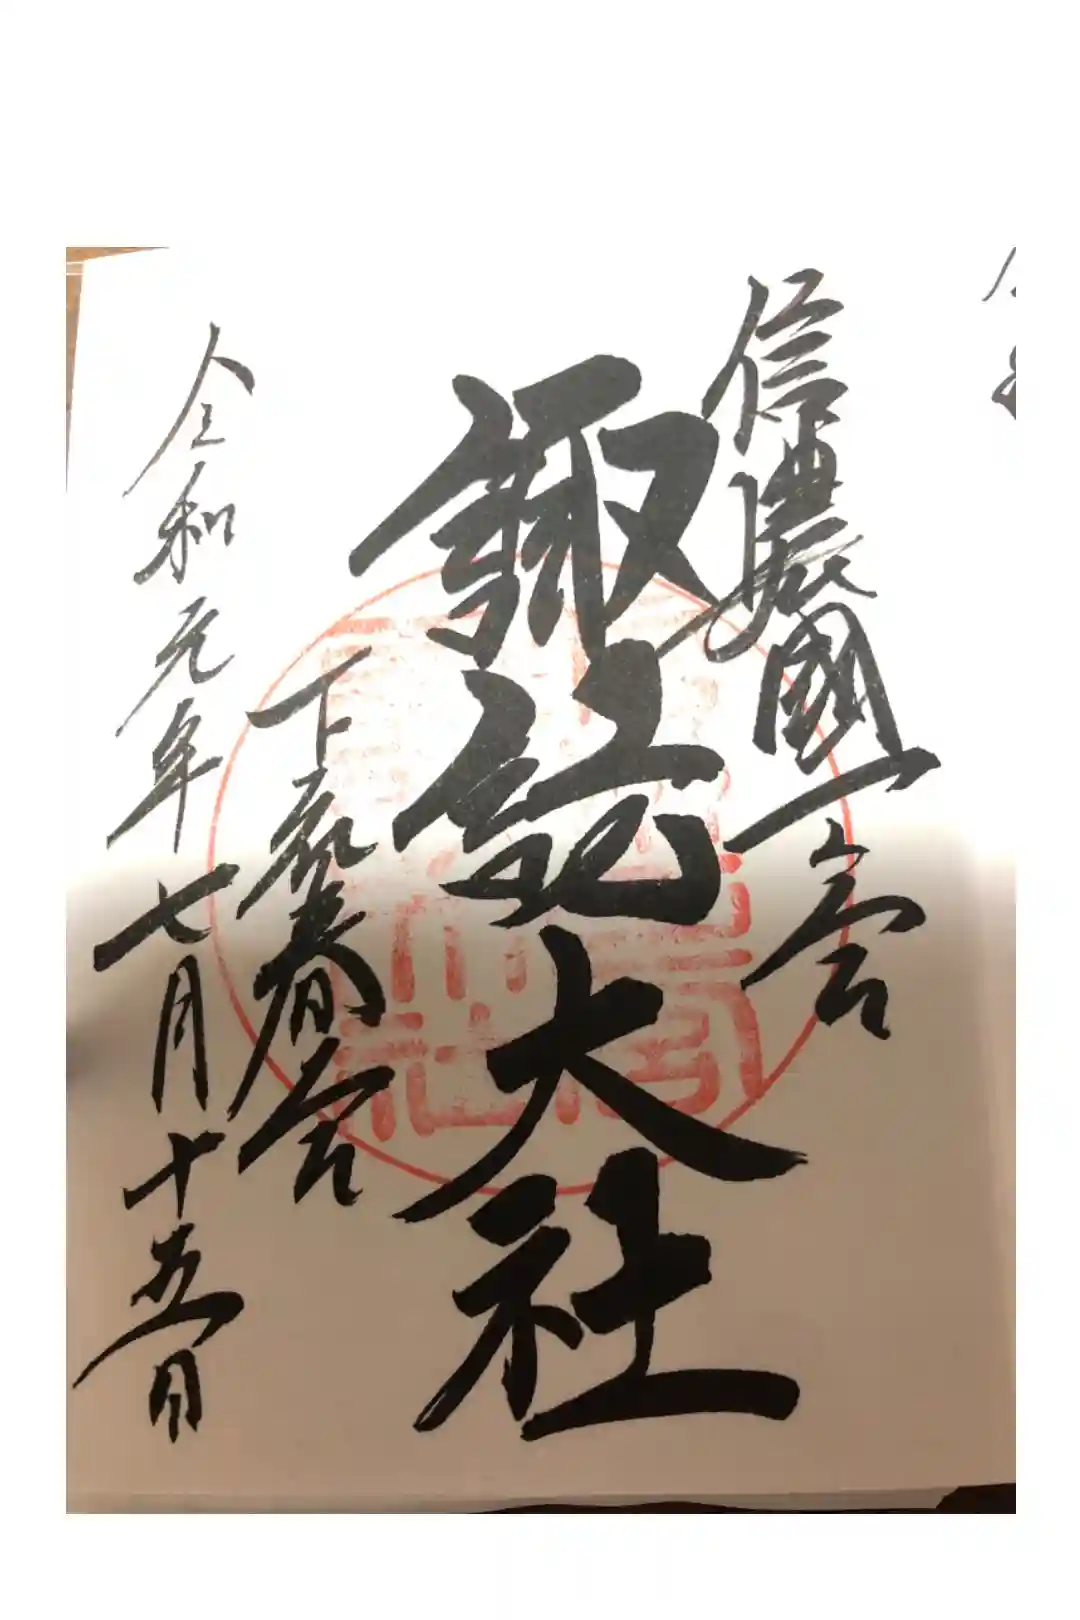 信濃國一宮
諏訪大社
下社春宮
令和元年七月十五日